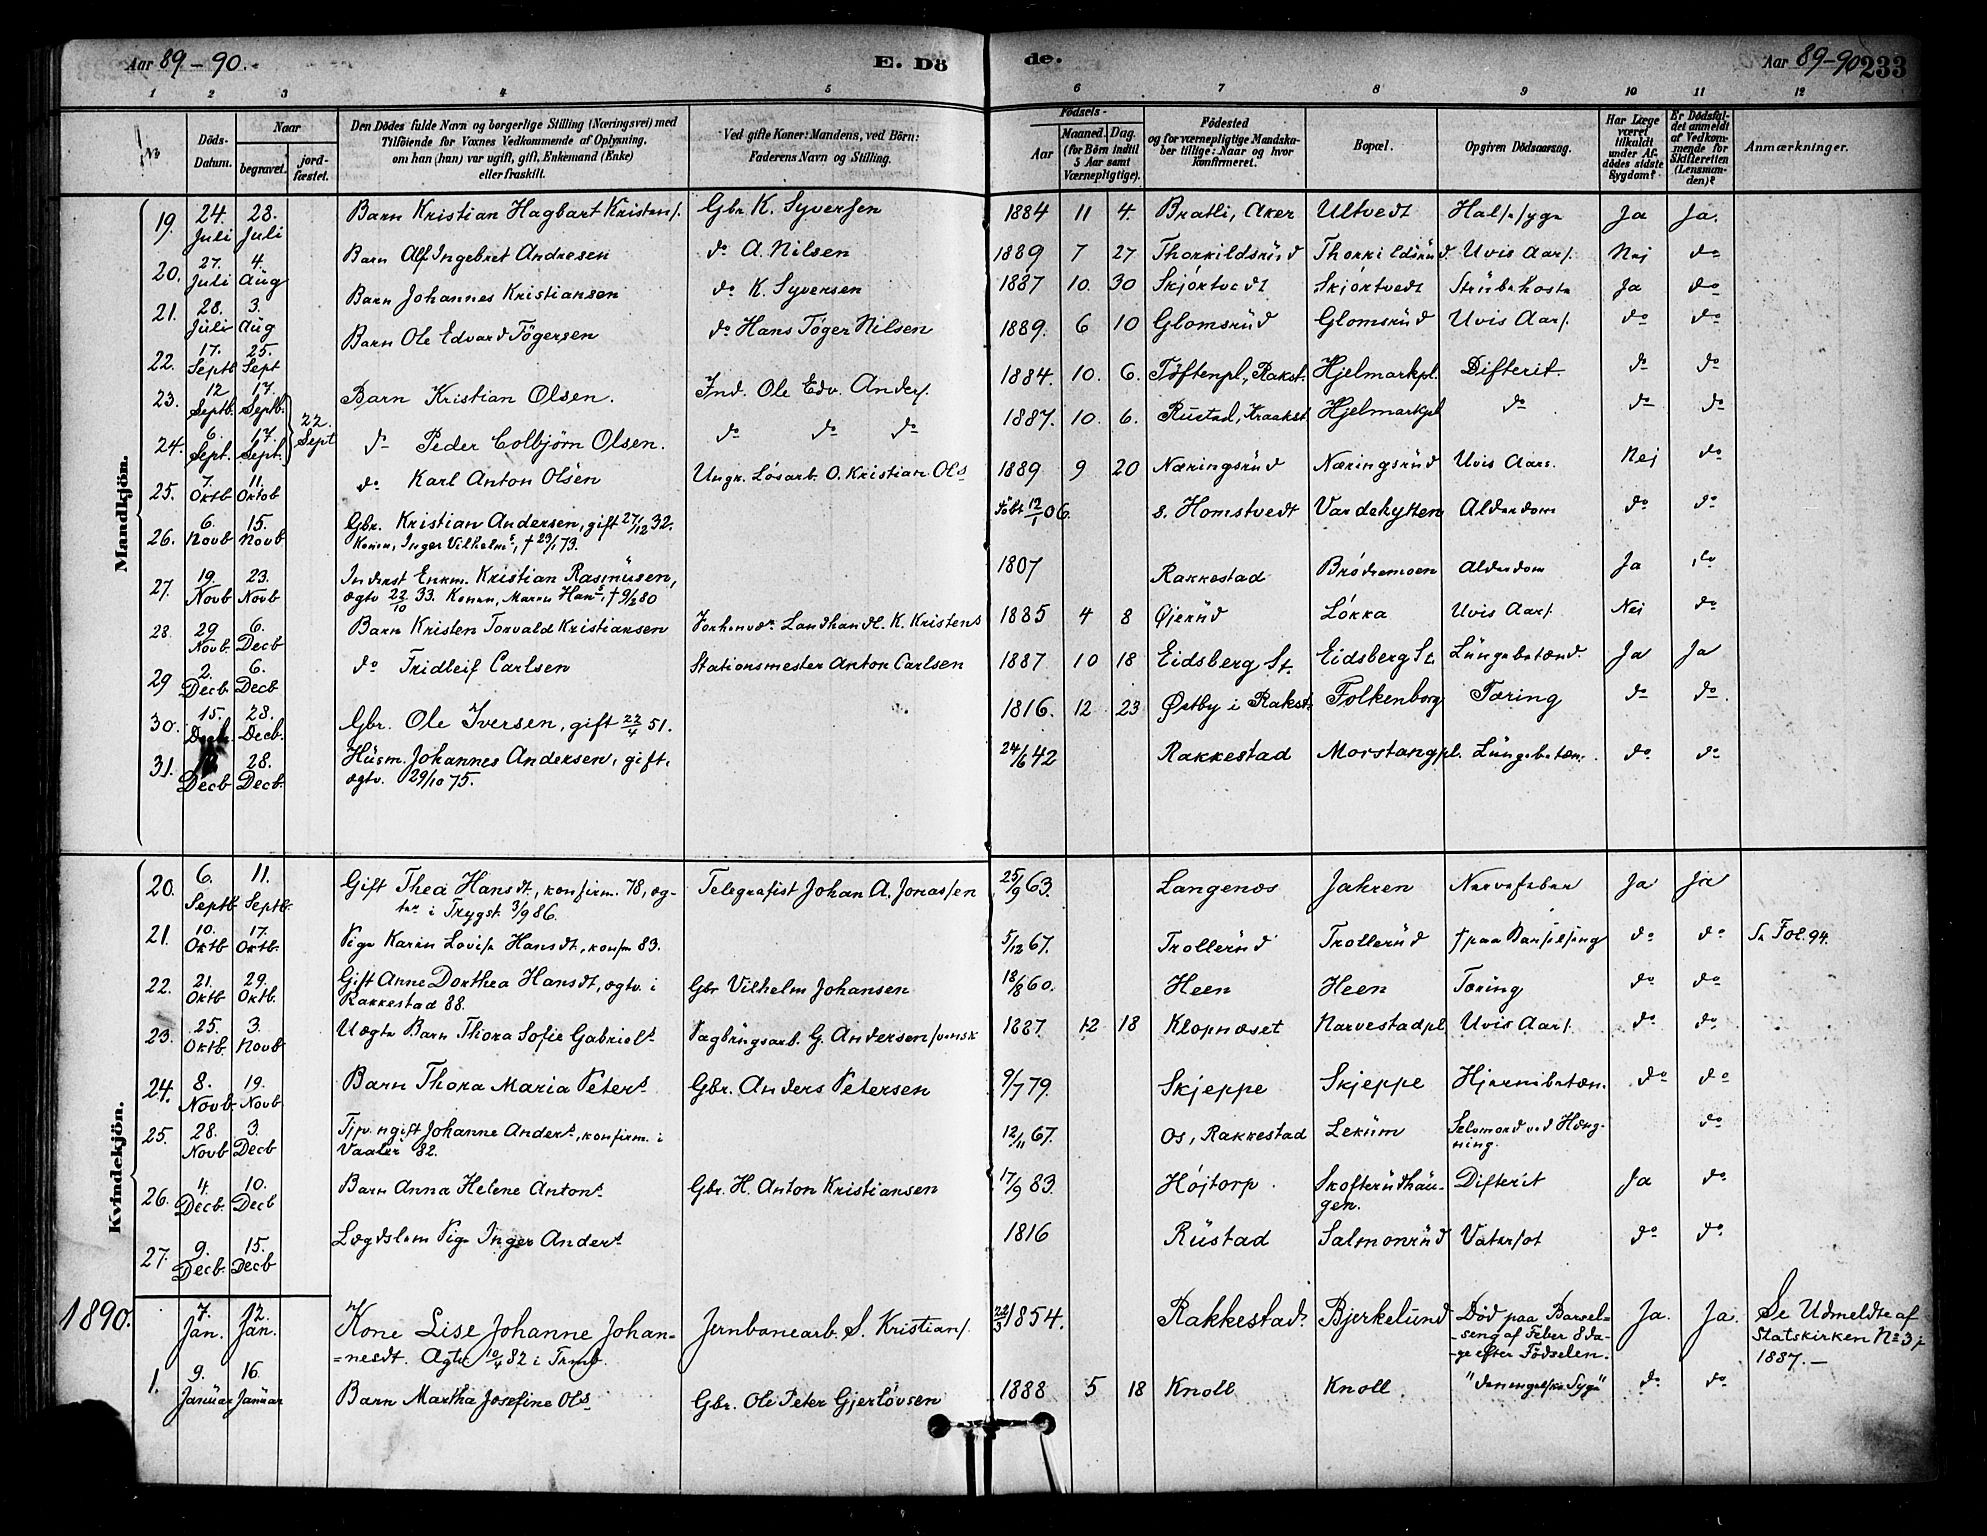 Aar 89-90.
E. Dö
de.
Aar 89-90
233
1 2 3 4 5 6 7 8 9 10 11 12
Döds-
Datum.
Naar
begravet.
jord-
fæstet.
Den Dödes fulde Navn og borgerlige Stilling (Næringsvei) med
Tilföiende for Voxnes Vedkommende af Oplysning,
om han (hun) var ugift, gift, Enkemand (Enke)
eller fraskilt.
Ved gifte Koner: Mandens, ved Börn:
Faderens Navn og Stilling.
Födsels-
Aar
Maaned.
Dag.
(for Börn indtil
5 Aar samt
Værnepligtige).
Födested
og for værnepligtige Mandska-
ber tillige: Naar og hvor
konfirmeret.
Bopæl.
Opgiven Dödsaarsag.
Har Læge
været
tilkaldt
under Af-
dödes sidste
Sygdom?
Er Dödsfal-
det anmeldt
af Vedkom-
mende for
Skifteretten
(Lensman-
den)?
Anmærkninger.
Mandkjön.
19. 24. Juli 28. Juli Barn Kristian Hagbart Kristens. Gbr. K. Syversen 1884 11 4. Bratli, Aker Ultvedt Halssyge Ja Ja.
20. 27. Juli 4. Aug Barn Alf Ingebret Andresen do A. Nilsen 1889 7 27 Thorkildsrüd Thorkildsrüd Uvis Aars. Nej do
21. 28. Juli 3. Aug Barn Johannes Kristiansen do K. Syversen 1887 10. 30 Skjörtvedt Skjörtvedt Strübehoste Ja do
22. 17. Septb 25. Sept Barn Ole Edvard Tögersen do Hans Töger Nilsen 1889. 6 10 Glomsrüd Glomsrüd Uvis Aars. do do
23. 12 Septb. 17. Septb. 22. Sept Barn Kristian Olsen. Ind. Ole Edv. Anders. 1884. 10. 6. Töftenpl., Rakst. Hjelmarkpl. Difterit. do do
24. 6. Sept. 17. Sept. do Peder Colbjørn Olsen. do do do 1887. 10. 6. Rüstad, Kraakst. Hjelmarkpl do do do
25. 7. Oktb 11. Oktob do Karl Anton Olsen Ungk. Løsarb. O. Kristian Ols 1889 9 20 Næringsrüd Næringsrüd Uvis Aars. Nej do
26. 6. Novb 15. Novb Gbr. Kristian Andersen, gift 27/12 32. Födt 12/1 06. s. Homstvedt Vardehytten Alderdom do do
Konen, Inger Vilhelms, † 23/1 73.
27. 19. Novb 23. Novb Inderst Enkm. Kristian Rasmüsen, 1807 Rakkestad Brödremoen Alderdom Ja do
ægtv 22/10 33. Konen, Maren Hans, † 9/2 80
28. 29 Novb. 6. Decb Barn Kristen Torvald Kristiansen Forhenvr. Landhandl. K. Kristens 1885 4 8 Øjerüd Lökka Uvis Aars. Nej do
29 2. Decb 6. Decb do Fridleif Carlsen Stationsmester Anton Carlsen 1887 10 18 Eidsberg St. Eidsberg St. Lüngebetænd. Ja Ja
30. 15. Decb. 28. Decb. Gbr. Ole Iversen, gift 22/4 51. 1816. 12 23 Østby i Rakst. Folkenborg Tæring do do
31. Decb 28. Decb. Hüsm. Johannes Andersen, gift, 24/6 42 Rakkestad Morstangpl. Lüngebetæn. do do
ægtv. 29/10 75.
Kvindekjön.
20. 6. Septb 11. Septb. Gift Thea Hansdt., konfirm. 78, æg- Telegrafist Johan A. Jonassen 25/9 63. Langenæs Jahren Nervefeber Ja Ja
tev. i Trygst. 3/9 86.
21. 10. Oktb 17. Oktb. Pige Karen Lovise Hansdt, konfm 83. 5/12 67. Trollerüd Trollerüd † paa Barselseng do do Se Fol. 94.
22. 21. Oktb 29. Oktb. Gift Anne Dorthea Hansdt, ægtv. i Gbr Vilhelm Johansen 18/8 60. Heen Heen Tæring do do
Rakkestad 88.
23. 25. Oktb. 3. Novb Uægte Barn Thora Sofie Gabriels. Vægbüngsarb. G. Andersen svensk 1887. 12 18 Klopnæset Narvestadpl. Uvis Aars. do do
24. 8. Novb. 19. Novb Barn Thora Maria Peters. Gbr. Anders Petersen 9/7 79. Skjeppe Skjeppe Hjernebetæn. do do
25. 28. Novb 3. Decb Tjp. ugift Johanne Anders., konfirm. i 12/11 67. Os, Rakkestad Leküm Selvmord ved Hæng- do
Vaaler 82. ning.
26. 4. Decb. 10. Decb Barn Anna Helene Antons. Gbr. H. Anton Kristiansen 17/9 83. Højtorp. Skofterüdhäu- Difterit Ja do
gen.
27. 9. Decb. 15. Decb Lægdslem Pige Inger Anders. 1816 Rüstad Salmonrüd Vatersot do do
1890.
7. Jan. 12. Jan. Kone Lise Johanne Johan= Jernbanearb. S. Kristians. 22/3 1854. Rakkestad. Bjerkelund Död paa Barsel= Ja. Ja. Se Udmeldte af
=nesdt. Ægtv 10/4 82 i Trmb. -seng af Feber 8 da- Statskirken No 3 i
-ge efter Födselen. 1887.—
1. 9. Januar 16. Januar Barn Martha Josefine Ols. Gbr. Ole Peter Gjerlövsen 1888 5 18 Knoll Knoll. "den engelske Syge" do do